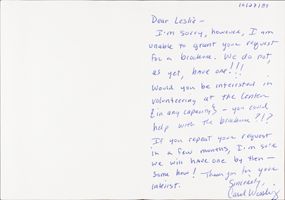 10/27/87
Dear Leslie –
I'm sorry, however, I am
unable to grant your request
for a brochure. We do not,
as yet, have one!!!
Would you be interested in
volunteering at the Center
(in any capacity) – you could
help with the brochure?!?
If you repeat your request
in a few months, I'm sure
we will have one by then –
some how! Thank you for your
interest.
Sincerely,
Carol